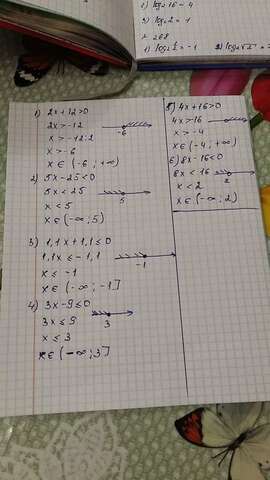 1) log₂ 16 = 4
1) 2x+12>0
2x>-12
x>-12:2
x>-6
x∈(-6;+∞)
-6
2) 5x-25<0
5x<25
x<5
x∈(-∞;5)
5
3) 1,1x+1,1≤0
1,1x≤-1,1
x≤-1
x∈(-∞;-1]
-1
4) 3x-9≤0
3x≤9
x≤3
x∈(-∞;3]
3
5) 4x+16>0
4x>16
x>-4
x∈(-4;+∞)
6) 8x-16<0
8x<16
x<2
x∈(-∞;2)
2